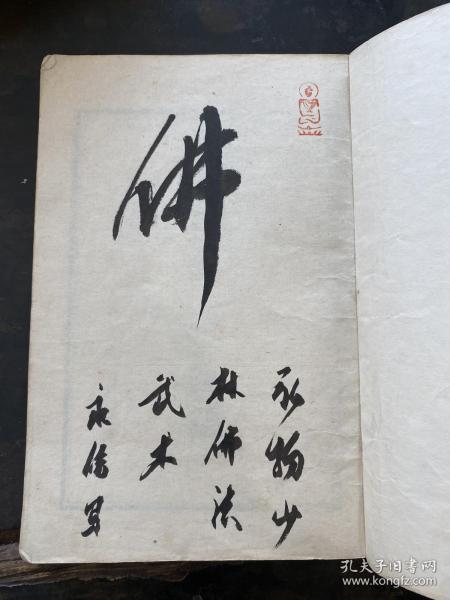 佛
弘扬少
林佛法
武术
永信
孔夫子旧书网
www.kongfz.com